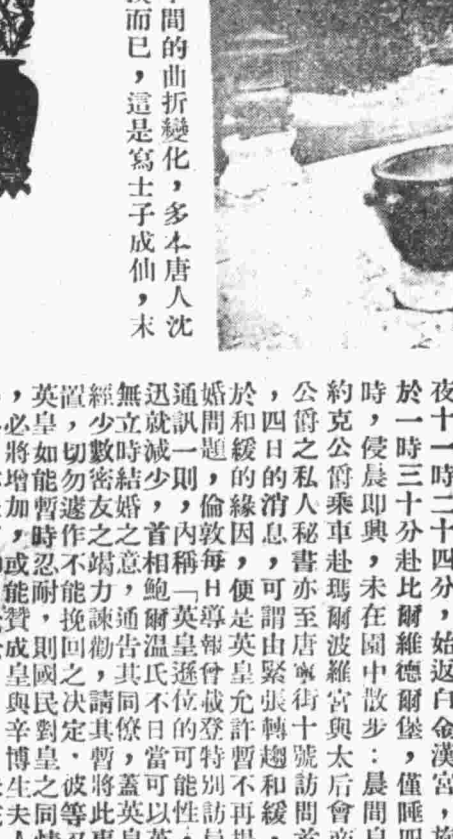 間的曲折變化，多本唐人沈
而已，這是寫士子成仙，末
夜十一時二十四分，始返白金漢宮，
於一時三十分赴比爾維德爾堡，僅睡
時，侵晨即興，未在園中散步：晨間
約克公爵乘車赴瑪爾波羅宮與太后會
公爵之私人秘書亦至唐寧街十號訪問首
，四日的消息，可謂由緊張轉趨和緩，
於和緩的緣因，便是英皇允許暫不再
婚問題，倫敦每日導報曾載登特別訪
通訊一則，內稱「英皇遜位的可能性，
迅就減少，首相鮑爾溫氏不日當可以英
無立時結婚之意，通告其同僚，蓋英皇
經少數密友之竭力諫勸，請其暫將此事
置，切勿遽作不能挽回之決定，彼等
英皇如能暫時忍耐，則國民對皇之同情
，必將增加，或能贊成皇與辛博生夫人